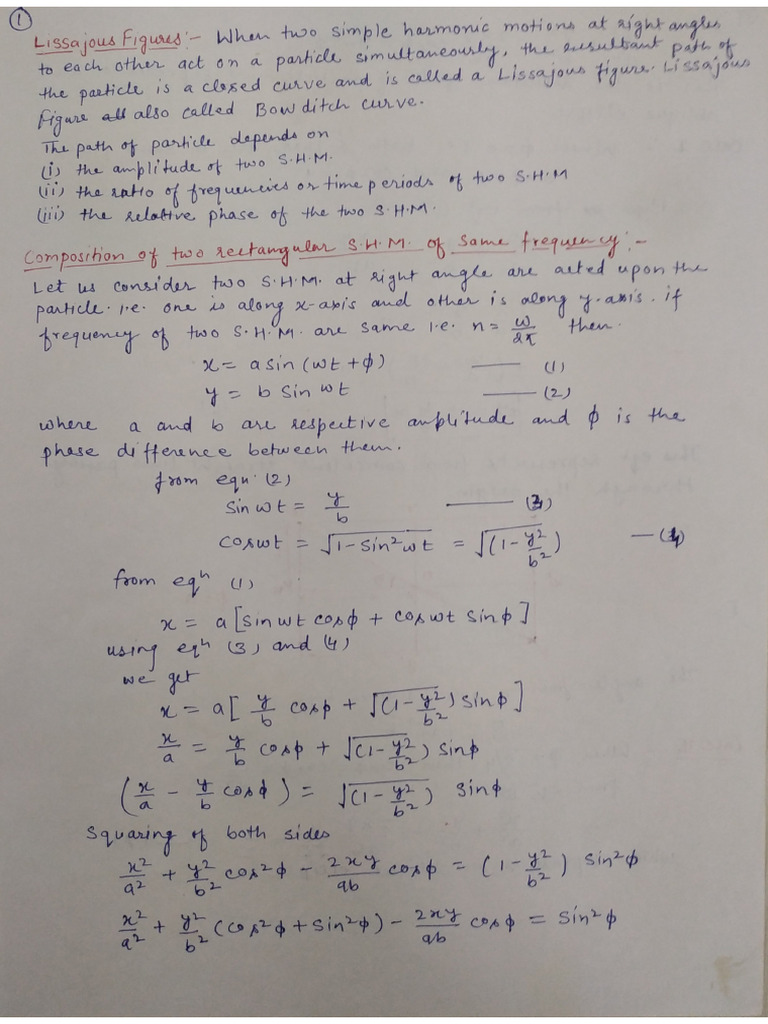 ①
Lissajous Figures:- When two simple harmonic motions at right angles
to each other act on a particle simultaneously, the resultant path of
the particle is a closed curve and is called a Lissajous figure. Lissajous
Figure also called Bowditch curve.
The path of particle depends on
(i) the amplitude of two S.H.M.
(ii) the ratio of frequencies or time periods of two S.H.M
(iii) the relative phase of the two S.H.M.
Composition of two rectangular S.H.M. of same frequency:-
Let us consider two S.H.M. at right angle are acted upon the
particle. i.e. one is along x-axis and other is along y-axis. if
frequency of two S.H.M. are same i.e. n = ω/2π then.
x = a sin (ωt + φ) —— (1)
y = b Sin ωt —— (2)
where a and b are respective amplitude and φ is the
phase difference between them.
from equⁿ (2)
Sin ωt = y/b —— (3)
cos ωt = √(1 - Sin² ωt) = √(1 - y²/b²) — (4)
from eqⁿ (1)
x = a [sin ωt cos φ + cos ωt sin φ]
using eqⁿ (3) and (4)
we get
x = a [ y/b cos φ + √(1 - y²/b²) sin φ ]
x/a = y/b cos φ + √(1 - y²/b²) sin φ
(x/a - y/b cos φ) = √(1 - y²/b²) sin φ
Squaring of both sides
x²/a² + y²/b² cos² φ - 2xy/ab cos φ = (1 - y²/b²) Sin² φ
x²/a² + y²/b² (cos² φ + sin² φ) - 2xy/ab cos φ = Sin² φ